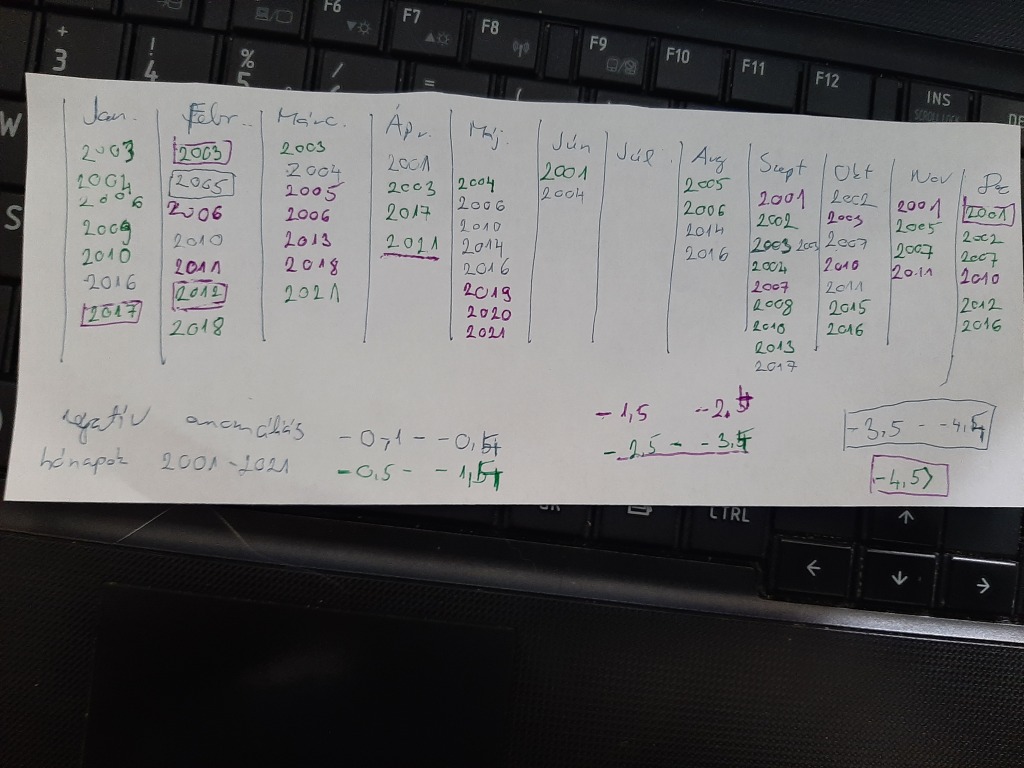 F6 F7 F8 F9 F10 F11 F12 INS
+ ! % / =
3 4 5
W
S
Jan. Febr. Márc. Ápr. Máj. Jún Júl Aug Szept Okt Nov Dec
2003 2003 2003 2001 2004 2001 2005 2001 2002 2001 2001
2004 2005 2004 2003 2006 2004 2006 2002 2003 2005 2002
2006 2006 2005 2017 2010 2014 2003 2003 2007 2007 2007
2009 2010 2006 2021 2014 2016 2004 2010 2011 2010
2010 2011 2013 2016 2007 2011 2012
2016 2012 2018 2019 2008 2015 2016
2017 2018 2021 2020 2010 2016
2021 2013
2017
negatív anomáliás -0,1 - -0,4 -1,5 -2,4 -3,5 - -4,4
hónapok 2001-2021 -0,5 - -1,4 -2,5 - -3,4 -4,5>
CTRL